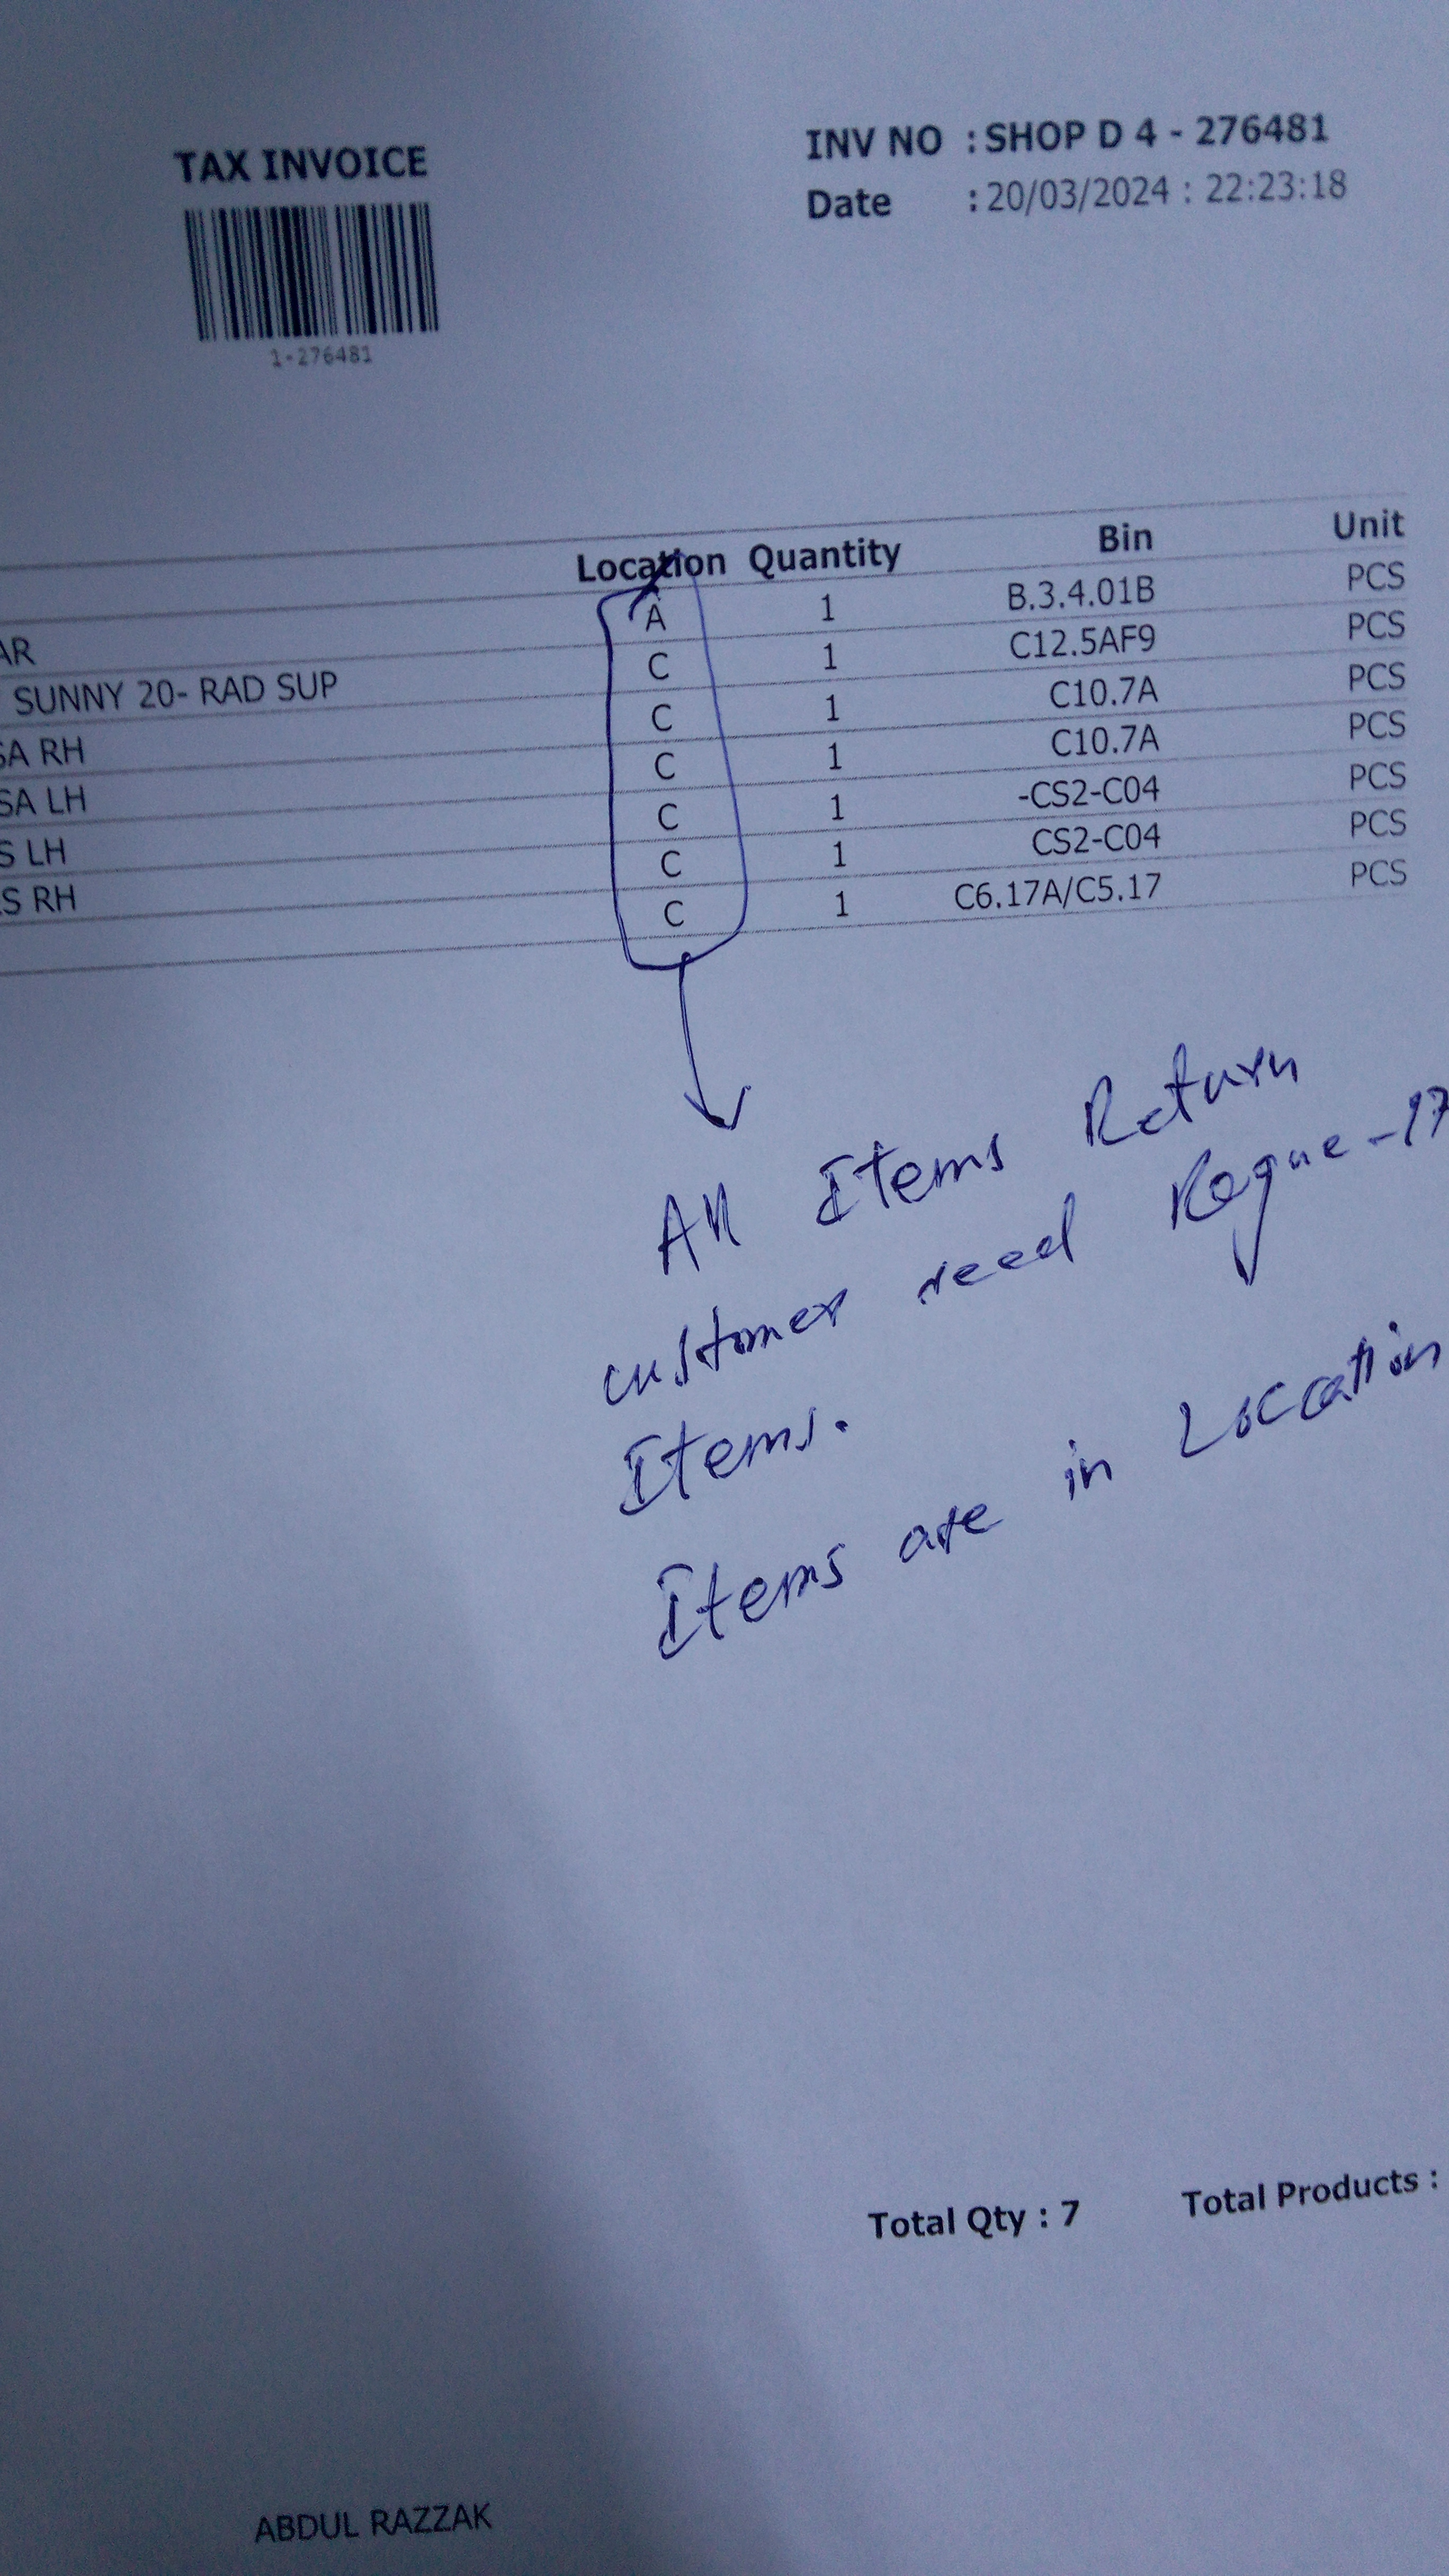 TAX INVOICE
INV NO : SHOP D 4 - 276481
Date : 20/03/2024 : 22:23:18
1-276481
Location Quantity Bin Unit
A 1 B.3.4.01B PCS
AR C 1 C12.5AF9 PCS
SUNNY 20- RAD SUP C 1 C10.7A PCS
SA RH C 1 C10.7A PCS
SA LH C 1 -CS2-C04 PCS
S LH C 1 CS2-C04 PCS
S RH C 1 C6.17A/C5.17 PCS
All Items Return
customer need Rogue-17
Items.
Items are in Location
Total Qty : 7 Total Products :
ABDUL RAZZAK